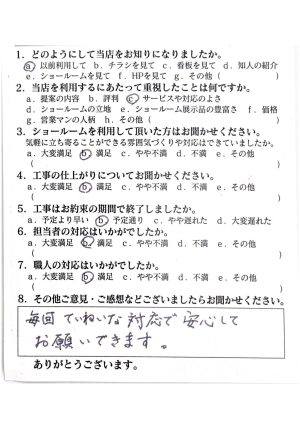 1. どのようにして当店をお知りになりましたか。
a. 以前利用して b. チラシを見て c. 看板を見て d. 知人の紹介
e. ショールームを見て f. HPを見て g. その他 (　　　)
2. 当店を利用するにあたって重視したことは何ですか。
a. 提案の内容 b. 評判 c. サービスや対応のよさ
d. ショールームの立地 e. ショールーム展示品の豊富さ f. 価格
g. 営業マンの人柄 h. その他 (　　　)
3. ショールームを利用して頂いた方はお聞かせください。
気軽に立ち寄ることができる雰囲気づくりや対応はできていましたか。
a. 大変満足 b. 満足 c. やや不満 d. 不満 e. その他
(　　　)
4. 工事の仕上がりについてお聞かせください。
a. 大変満足 b. 満足 c. やや不満 d. 不満 e. その他
(　　　)
5. 工事はお約束の期間で終了しましたか。
a. 予定より早い b. 予定通り c. やや遅れた d. 大変遅れた
6. 担当者の対応はいかがでしたか。
a. 大変満足 b. 満足 c. やや不満 d. 不満 e. その他
(　　　)
7. 職人の対応はいかがでしたか。
a. 大変満足 b. 満足 c. やや不満 d. 不満 e. その他
(　　　)
8. その他ご意見・ご感想などございましたらお聞かせください。
毎回 ていねいな 対応で 安心して
お願いできます。
ありがとうございます。